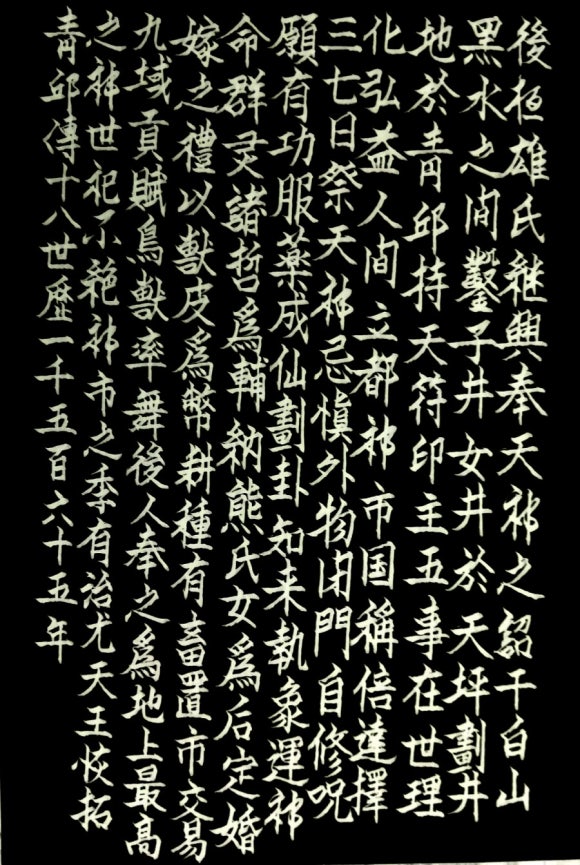 後桓雄氏継興奉天神之詔干白山
黑水之间鑿子井女井於天坪劃井
地於靑邱持天符印主五事在世理
化弘益人间立都神市国稱倍達擇
三七日祭天神忌愼外物闭門自修呪
願有功服藥成仙劃卦知来執象運神
命群灵諸哲爲輔納熊氏女爲后定婚
嫁之禮以獸皮爲幣耕種有畜置市交易
九域貢賦鳥獸率舞後人奉之爲地上最高
之神世祀不絶神市之季有治尤天王恢拓
靑邱傳十八世歷一千五百六十五年